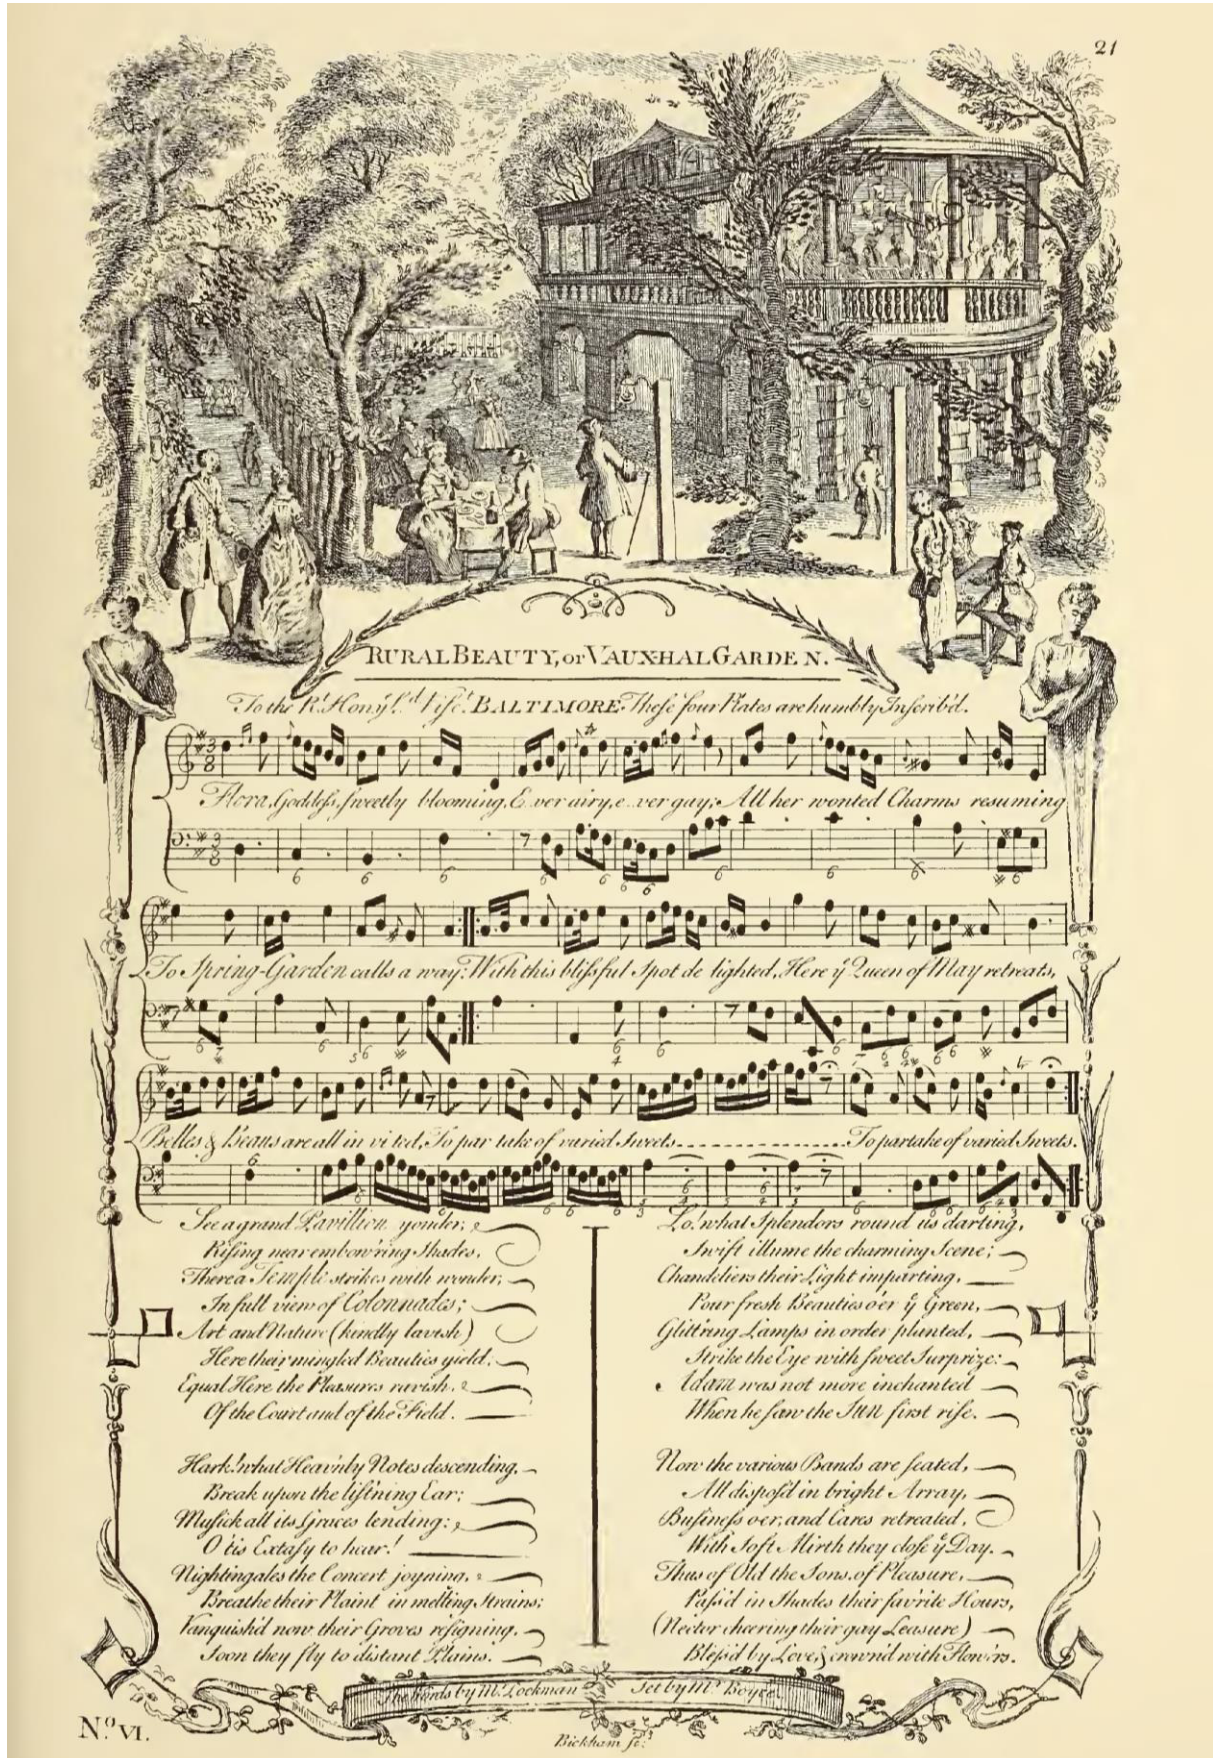 21
RURAL BEAUTY, or VAUXHAL GARDEN.
To the Rt. Honble. Ld. Visct. BALTIMORE These four Plates are humbly Inscrib'd.
Flora, Goddess, sweetly blooming, E..ver airy, e..ver gay; All her wonted Charms resuming
To Spring-Garden calls a way: With this blissful Spot de lighted, Here ye Queen of May retreats,
Belles & Beaus are all in vi ted, To par take of varied Sweets. To partake of varied Sweets.
See a grand Pavillion yonder,
Rising near embow'ring Shades,
There a Temple strikes with wonder,
In full view of Colonnades;
Art and Nature (kindly lavish)
Here their mingled Beauties yield:
Equal Here the Pleasures ravish,
Of the Court and of the Field.
Hark! what Heav'nly Notes descending,
Break upon the list'ning Ear;
Musick all its Graces lending:
O 'tis Extasy to hear!
Nightingales the Concert joyning,
Breathe their Plaint in melting Strains;
Vanquish'd now their Groves resigning,
Soon they fly to distant Plains.
Lo! what Splendors round us darting,
Swift illume the charming Scene;
Chandeliers their Light imparting,
Pour fresh Beauties o'er ye Green,
Glitt'ring Lamps in order planted,
Strike the Eye with sweet Surprize:
Adam was not more inchanted
When he saw the Sun first rise.
Now the various Bands are seated,
All dispos'd in bright Array,
Business o'er, and Cares retreated,
With Soft Mirth they close ye Day.
Thus of Old the Sons of Pleasure,
Pass'd in Shades their fav'rite Hours,
(Nector cheering their gay Leasure)
Bless'd by Love, & crown'd with Flow'rs.
The Words by Mr. Lockman Set by Mr. Boyce.
No. VI.
Bickham sc: